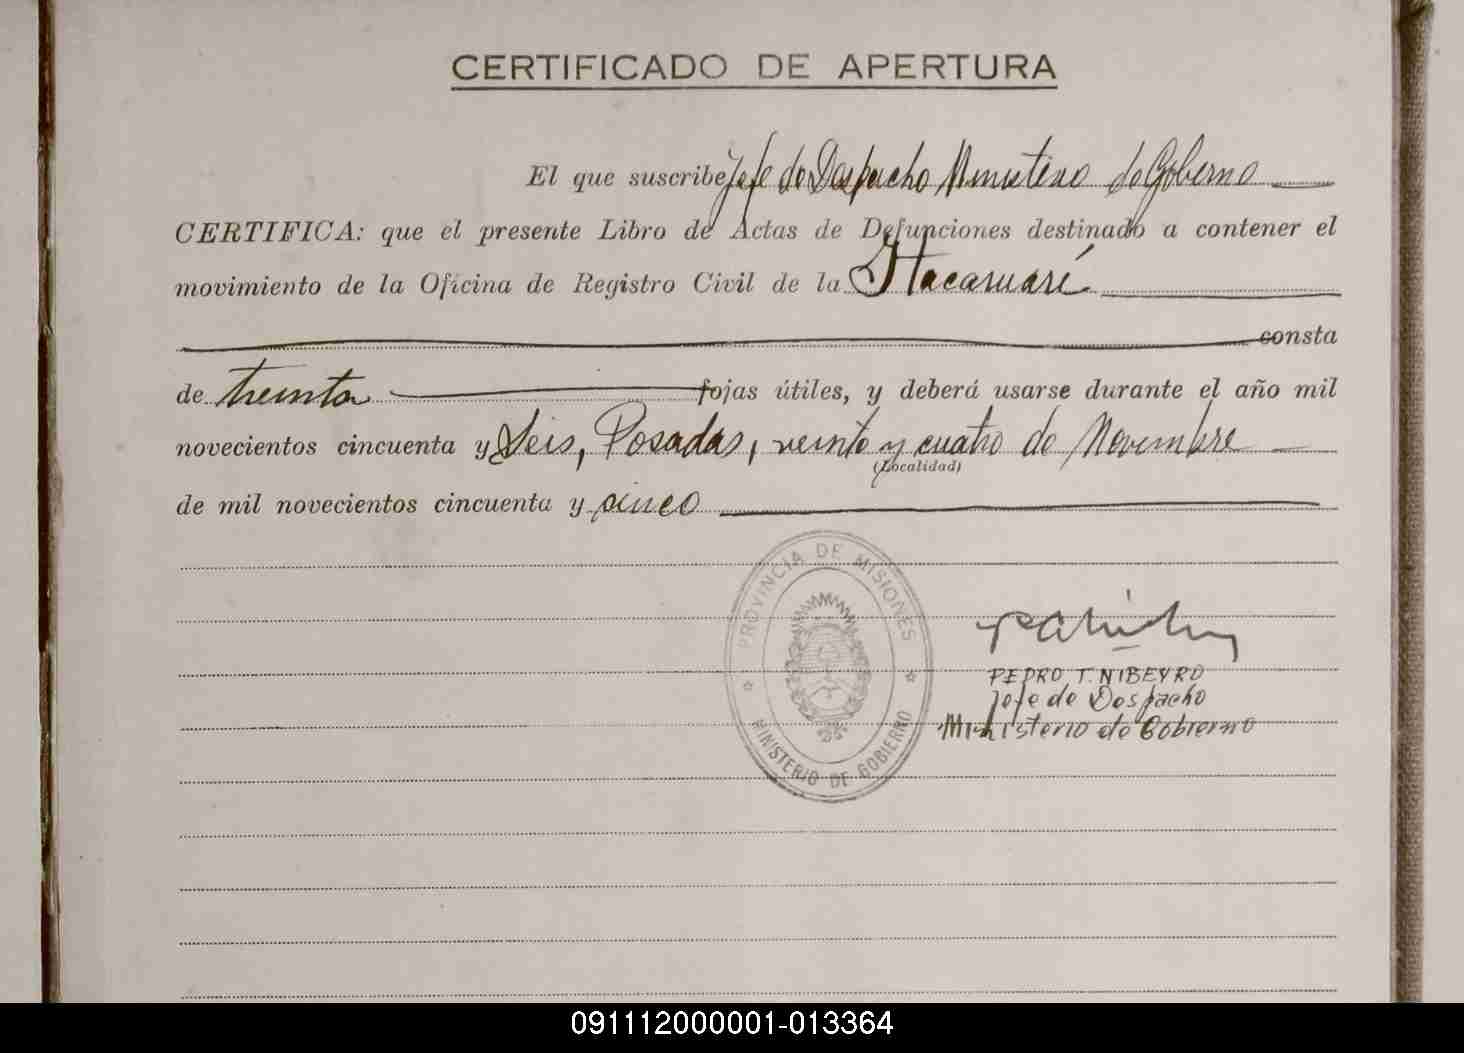 CERTIFICADO DE APERTURA
El que suscribe Jefe de Despacho Ministerio de Gobierno
CERTIFICA: que el presente Libro de Actas de Defunciones destinado a contener el
movimiento de la Oficina de Registro Civil de la Itacaruaré
consta
de treinta fojas útiles, y deberá usarse durante el año mil
novecientos cincuenta y Seis, Posadas, veinte y cuatro de Noviembre
(Localidad)
de mil novecientos cincuenta y cinco
PROVINCIA DE MISIONES
MINISTERIO DE GOBIERNO
PEDRO T. NIBEYRO
Jefe de Despacho
Ministerio de Gobierno
091112000001-013364